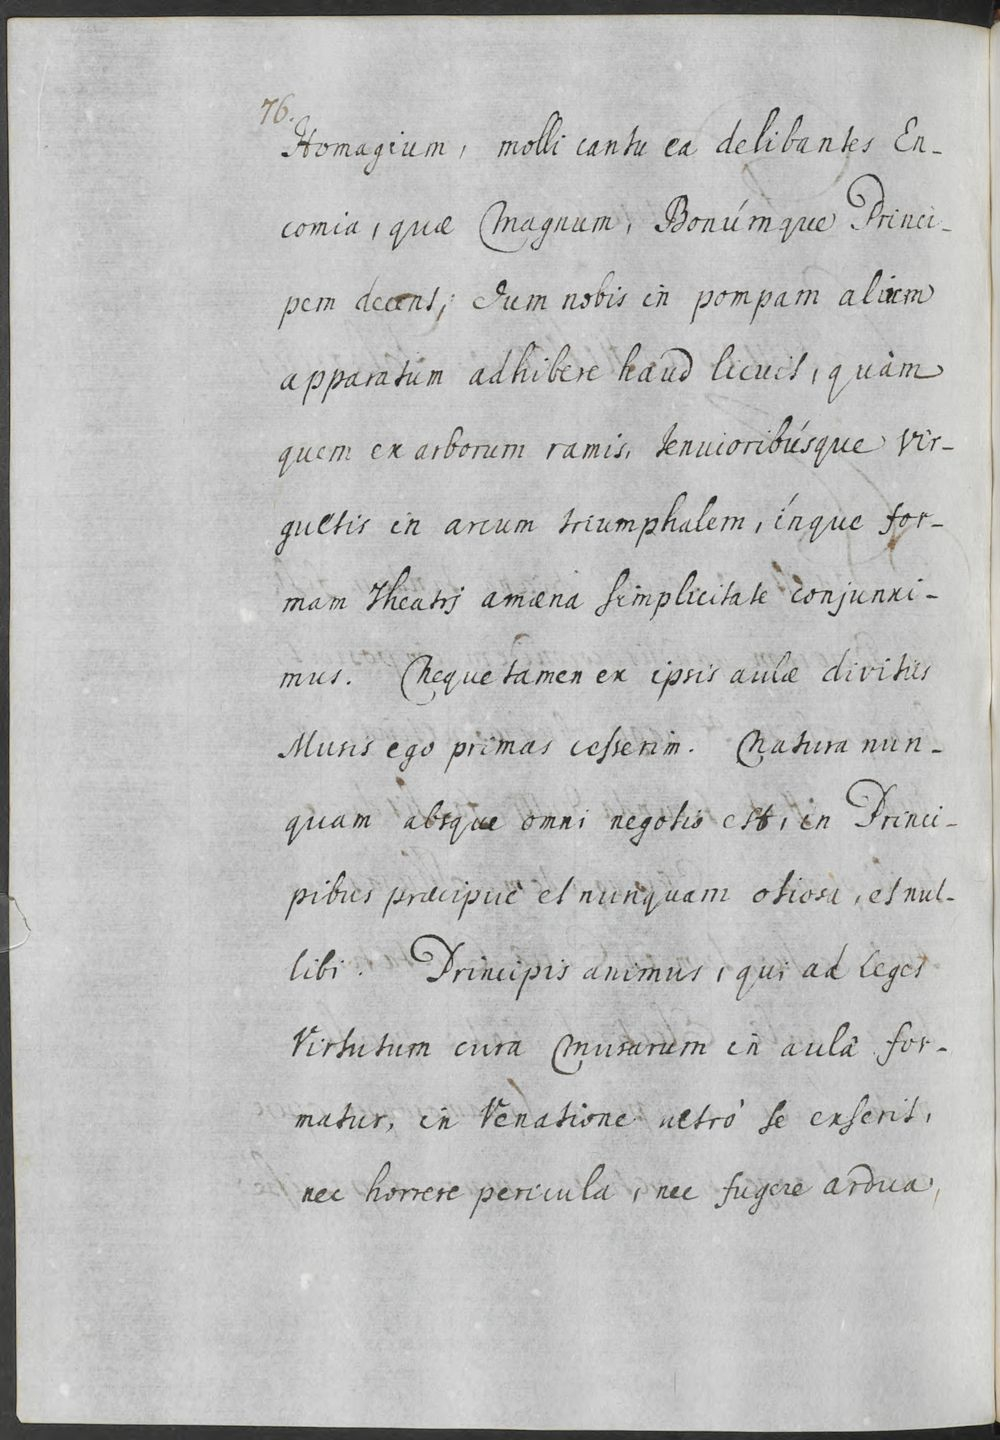 76.
Homagium, molli cantu ea delibantes En-
comia, quæ Magnum, Bonúmque Princi-
pem decent; dum nobis in pompam alium
apparatum adhibere haud licuit, quàm
quem ex arborum ramis, tenuioribúsque vir-
gultis in arcum triumphalem, ínque for-
mam theatrj amæna simplicitate conjunxi-
mus. Neque tamen ex ipsis aulæ divitiis
Musis ego primas cesserim. Natura nun-
quam absque omni negotio est, in Princi-
pibus præcipuè et nunquam otiosa, et nul-
libi. Principis animus, qui ad leges
Virtutum cura Musarum in aulâ for-
matur, in Venatione ultrò se exserit,
nec horrere pericula, nec fugere ardua,